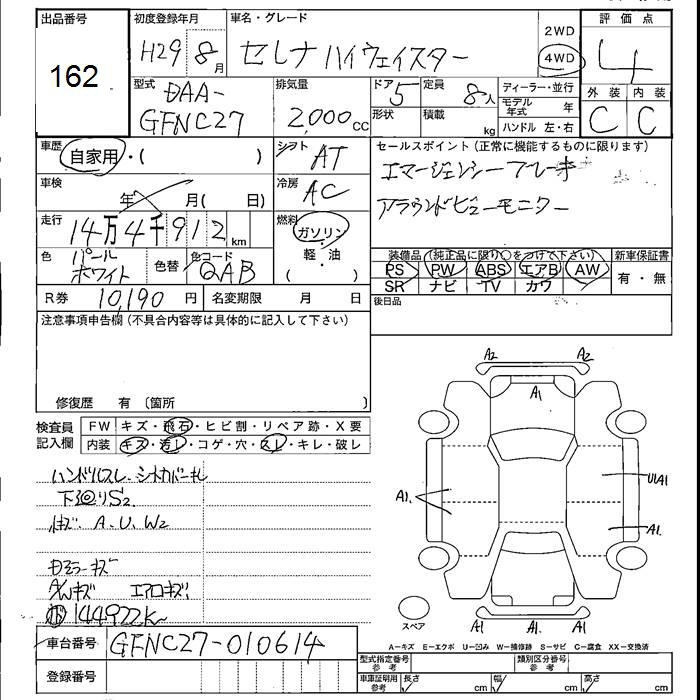 出品番号 初度登録年月 車名・グレード 2WD 評価点
162 H29 8月 セレナ ハイウェイスター 4WD 4
型式 排気量 ドア 定員 ディーラー・並行 外装 内装
DAA- 5 8人 モデル年式 年
GFNC27 2,000cc 形状 積載 kg ハンドル 左・右 C C
車歴 自家用・( ) シフト AT セールスポイント(正常に機能するものに限ります)
エマージェンシーブレーキ
車検 年 月( 日) 冷房 AC アラウンドビューモニター
走行 14万4千912km 燃料 ガソリン・軽・油 ( )
色 パールホワイト 色替 色コード QAB 装備品(純正品に限り○をつけて下さい) 新車保証書
PS PW ABS エアB AW 有・無
SR ナビ TV カワ
R券 10,190円 名変期限 月 日 後日品
注意事項申告欄(不具合内容等は具体的に記入して下さい)
修復歴 有 〔箇所 〕
A2 A2
A1
検査員記入欄 FW キズ・飛石・ヒビ割・リペア跡・X要
内装 キズ・汚レ・コゲ・穴・スレ・キレ・破レ
ハンドルスレ.
下廻りS2
A. U. W2
A1. U1A1
A1.
エアロキズ
144922k
A1 A1
スペア
車台番号 GFNC27-010614
A=キズ E=エクボ U=凹み W=補修跡 S=サビ C=腐食 XX=交換済
登録番号
型式指定番号 参考 類別区分番号 参考
車庫証明用 参考 長さ cm 幅 cm 高さ cm